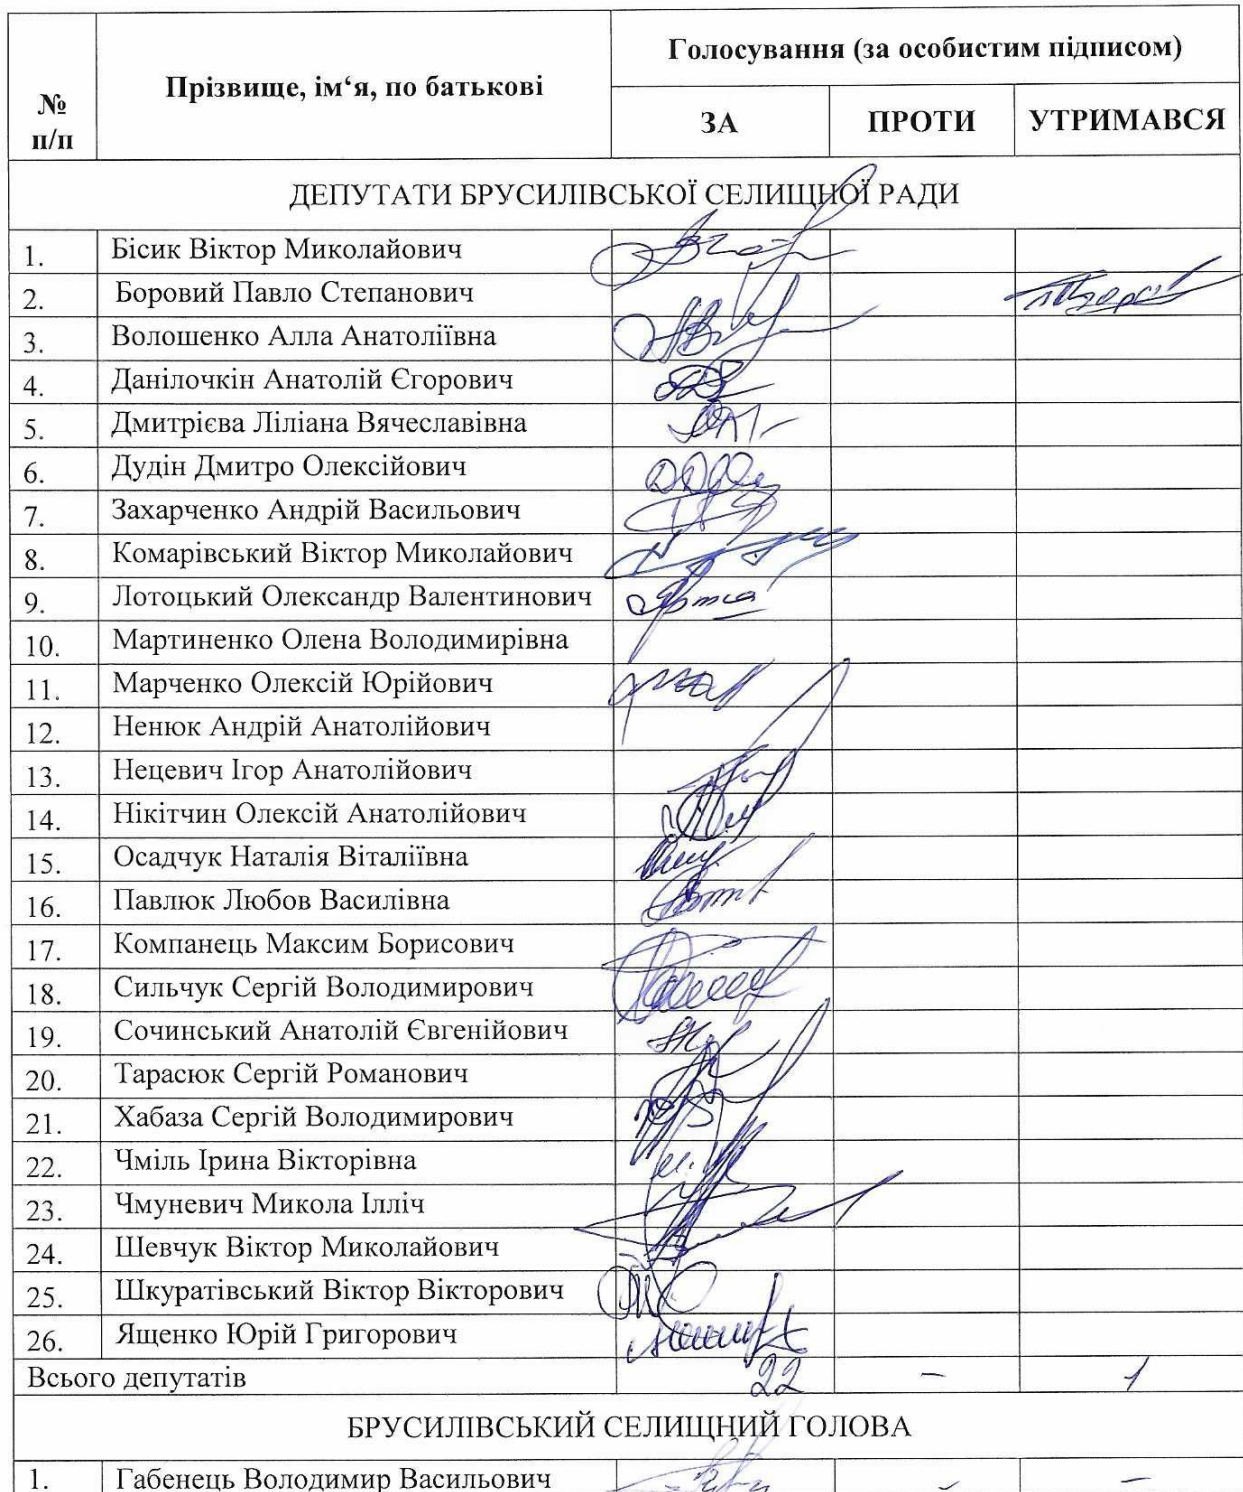 № п/п
Прізвище, ім‘я, по батькові
Голосування (за особистим підписом)
ЗА ПРОТИ УТРИМАВСЯ
ДЕПУТАТИ БРУСИЛІВСЬКОЇ СЕЛИЩНОЇ РАДИ
1. Бісик Віктор Миколайович
2. Боровий Павло Степанович
3. Волошенко Алла Анатоліївна
4. Данілочкін Анатолій Єгорович
5. Дмитрієва Ліліана Вячеславівна
6. Дудін Дмитро Олексійович
7. Захарченко Андрій Васильович
8. Комарівський Віктор Миколайович
9. Лотоцький Олександр Валентинович
10. Мартиненко Олена Володимирівна
11. Марченко Олексій Юрійович
12. Ненюк Андрій Анатолійович
13. Нецевич Ігор Анатолійович
14. Нікітчин Олексій Анатолійович
15. Осадчук Наталія Віталіївна
16. Павлюк Любов Василівна
17. Компанець Максим Борисович
18. Сильчук Сергій Володимирович
19. Сочинський Анатолій Євгенійович
20. Тарасюк Сергій Романович
21. Хабаза Сергій Володимирович
22. Чміль Ірина Вікторівна
23. Чмуневич Микола Ілліч
24. Шевчук Віктор Миколайович
25. Шкуратівський Віктор Вікторович
26. Ященко Юрій Григорович
Всього депутатів 22 - 1
БРУСИЛІВСЬКИЙ СЕЛИЩНИЙ ГОЛОВА
1. Габенець Володимир Васильович - -